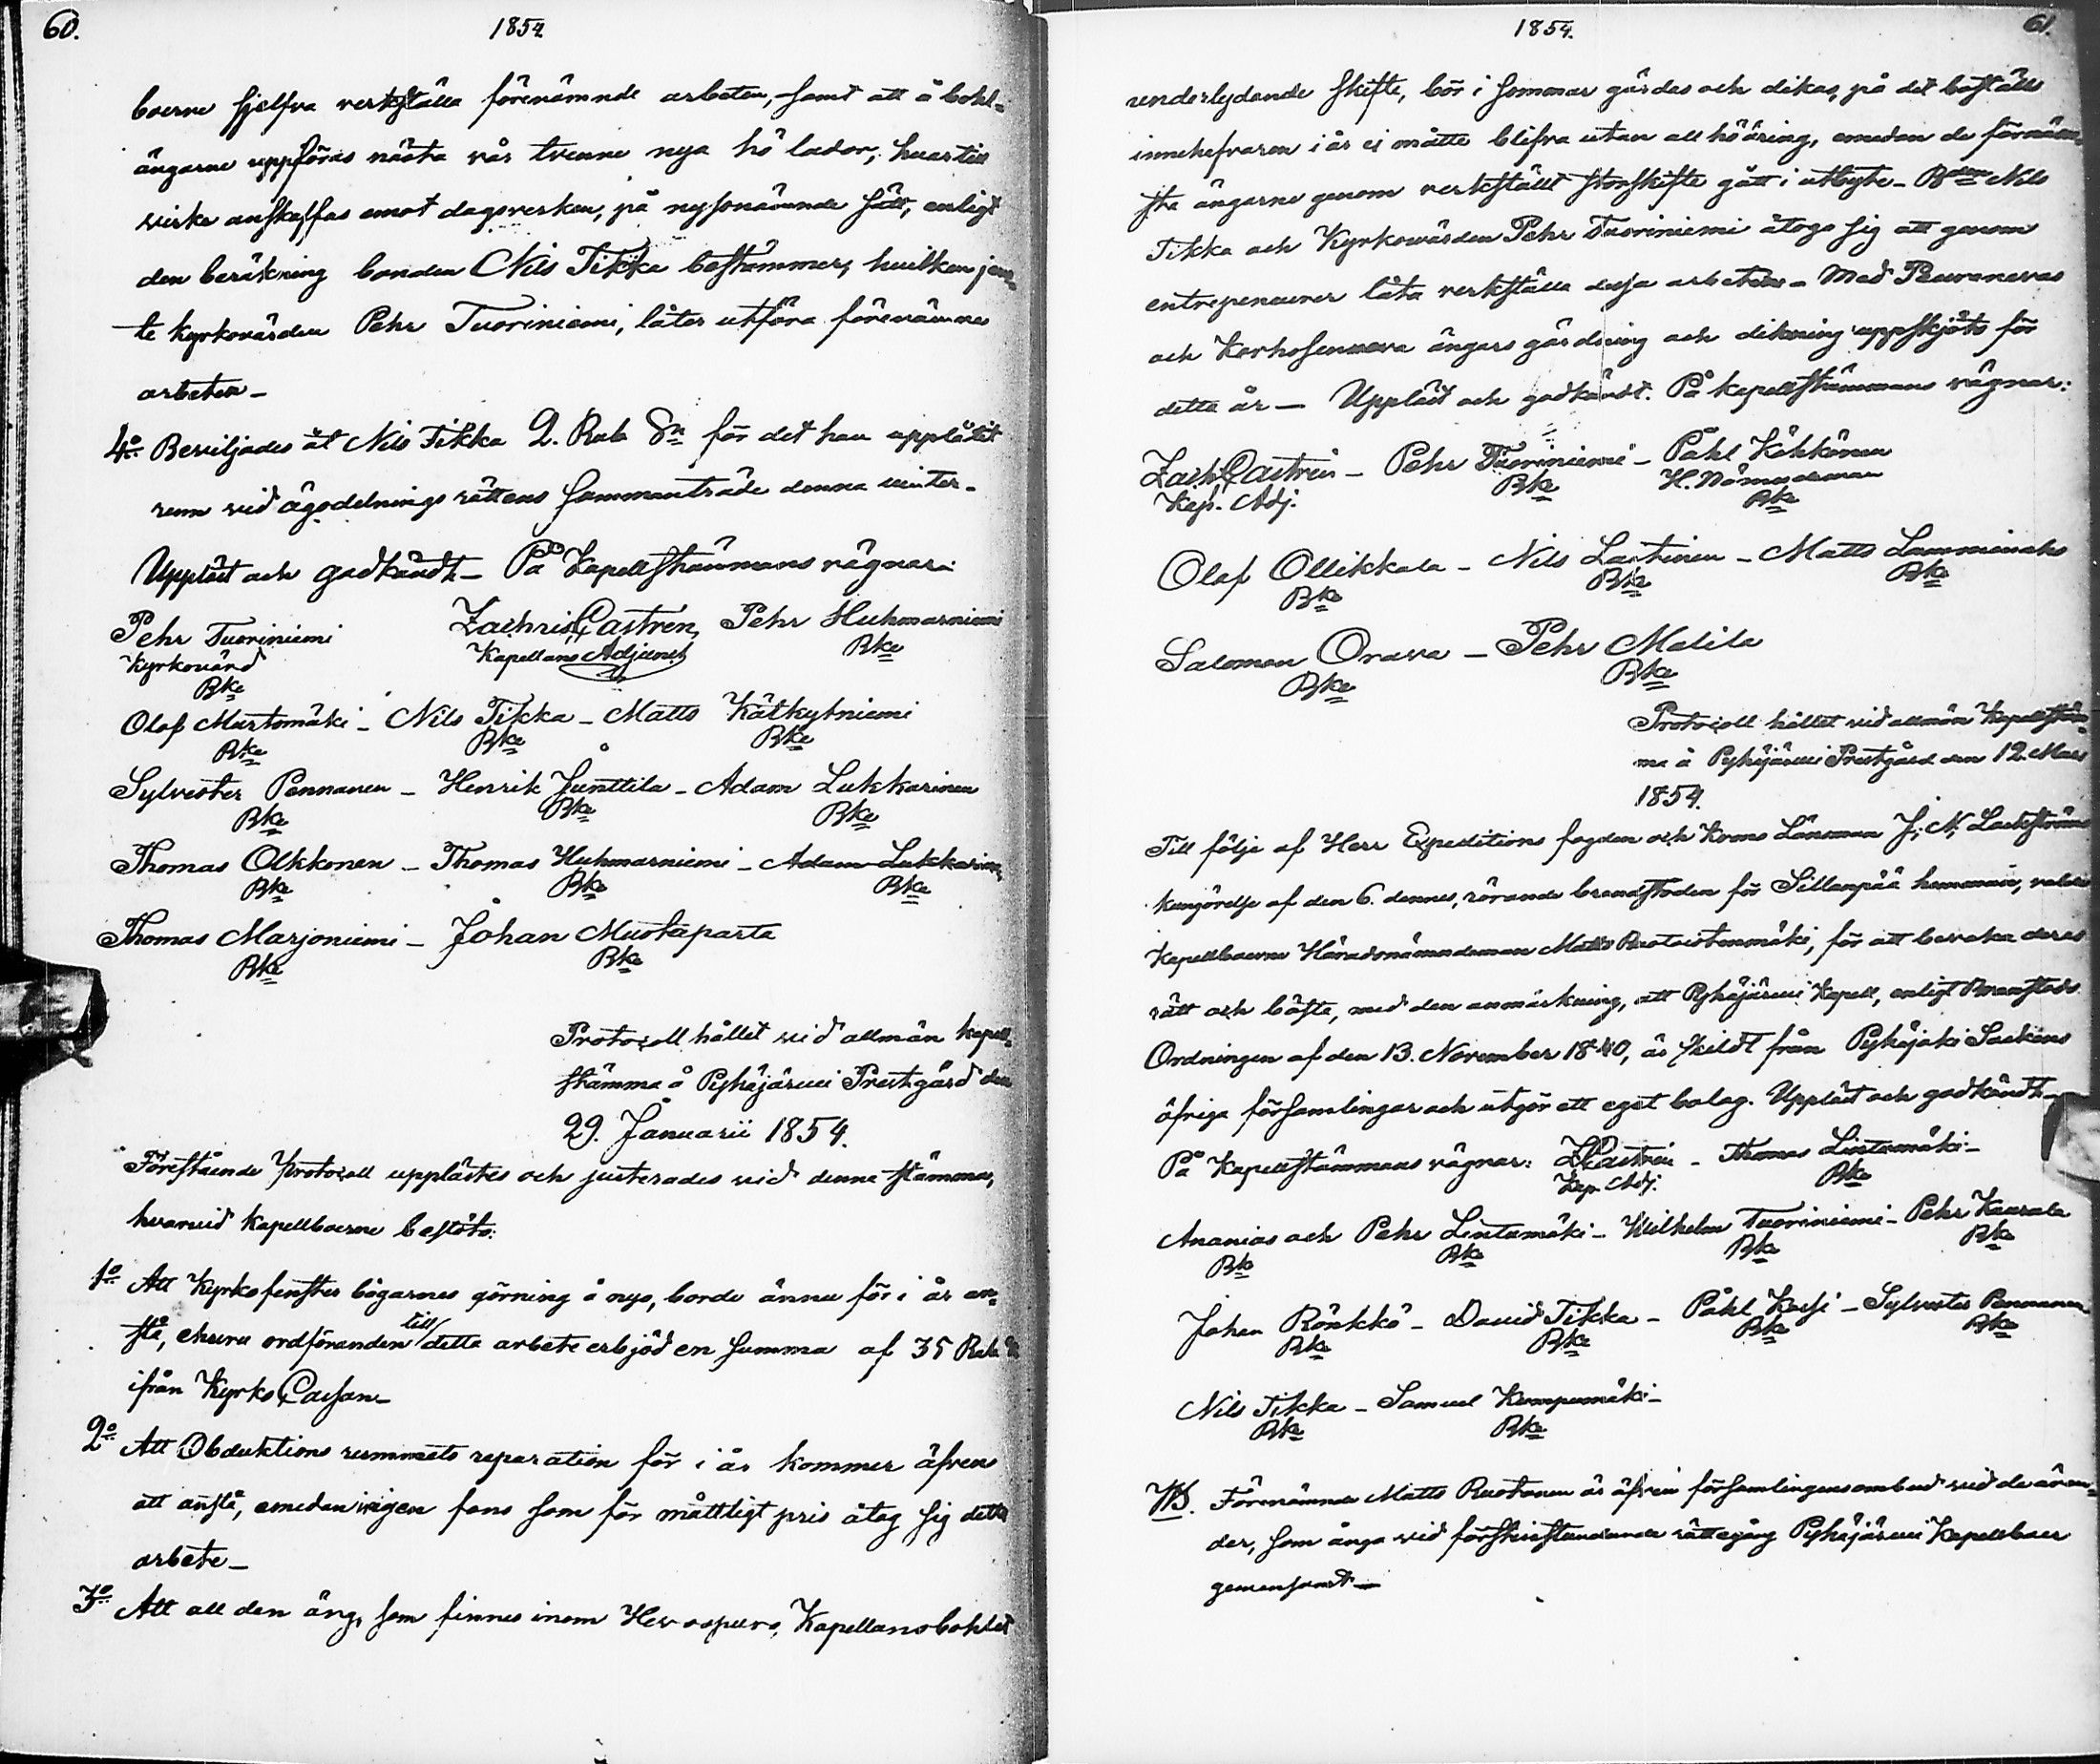 60.
1854
boerne sjelfva verkställa förenämnde arbeten, samt att å bohl-
ängarne uppföras nästa vår trenne nya hö lador, hvartill
virke anskaffas emot dagsverken, på nyssnämnde sätt, enligt
den beräkning bonden Nils Tikka bestämmer, hvilken jem-
te kyrkovärden Pehr Tuoriniemi, låter utföra förenämne
arbeten_
4o Beviljades åt Nils Tikka 2. Rub Sr för det han upplåtit
rum vid ägodelnings rättens sammanträde denna vinter.
Uppläst och godkändt_ På Kapellstämmans vägnar:
Pehr Tuoriniemi Zachris Castrén, Pehr Huhmarniemi
Kyrkovärd Kapellans Adjunct Bke
Bke
Olof Murtomäki _ Nils Tikka _ Matts Kätkytniemi
Bke Bke Bke
Sylvester Pennanen _ Henrik Junttila _ Adam Lukkarinen
Bke Bke Bke
Thomas Olkkonen _ Thomas Huhmarniemi _ Adam Lukkarinen
Bke Bke Bke
Thomas Marjoniemi _ Johan Mustaparta
Bke Bke
Protocoll hållet vid allmän kapell-
stämma å Pyhäjärvi Prestgård den
29. Januarii 1854.
Förestående protocoll upplästes och justerades vid denna stämma,
hvarvid kapellboerne beslöts:
1o Att Kyrkofenster bågarnes görning å nyo, borde ännu för i år an-
stå, ehuru ordföranden till detta arbete erbjöd en summa af 35 Rub Sr
ifrån Kyrko Cassan_
2o Att Obduktions rummets reparation för i år kommer äfvens
att anstå, emedan ingen fans som för måttligt pris åtog sig detta
arbete_
3o Att all den äng, som finnes inom Kapellansbohlet
1854.
61.
underlydande skifte, bör i sommar gärdas och dikas, på det boställs
innehafvaren i år ej måtte blifva utan all höäring, emedan de förnäm-
sta ängarne genom verkställt storskifte gått i utbyte_ Bden Nils
Tikka och Kyrkowärden Pehr Tuoriniemi åtogo sig att genom
entrepeneurer låta verkställa dessa arbeten_ Med
och ängars gärdning och dikning uppskjöts för
detta år _ Uppläst och godkändt. På kapellstämmans vägnar:
Zach: Castrén _ Pehr Tuoriniemi _ Påhl Kähkönen
Kap. Adj. Bke H. Nämndeman
Bke
Olof Ollikkala _ Nils Lastinen _ Matts Lamminaho
Bke Bke Bke
Salomon Orava _ Pehr Malila
Bke Bke
Protocoll hållet vid allmän Kapellstäm-
ma å Pyhäjärvi Prestgård den 12. Mars
1854.
Till följe af Herr Expeditions fogden och Krono Länsman J. N.
kungörelse af den 6. dennes, rörande brandstoden för Sillanpää hemman, valde
Kapellboerne Häradsnämndeman Matts för att bevaka deras
rätt och bästa, med den anmärkning, att Pyhäjärvi Kapell, enligt Brandstods
Ordningen af den 13. November 1840, är skildt från Pyhäjoki Sockens
öfriga församlingar och utgör ett eget bolag. Uppläst och godkändt_
På Kapellstämmans vägnar: Z. Castrén _ Thomas Lintumäki _
Kap. Adj. Bke
Ananias och Pehr Lintumäki _ Wilhelm Tuoriniemi _ Pehr Kaurala
Bke Bke Bke Bke
Johan Rönkkö _ David Tikka _ Påhl Kassi _ Sylvester Pennanen
Bke Bke Bke Bke
Nils Tikka _ Samuel Kumpumäki _
Bke Bke
NB. Förenämnde Matts Ruotanen är äfven församlingens ombud vid de ären-
der, som ånga vid förstkriftandande rättegång Pyhäjärvi Kapellboer
gemensamt _